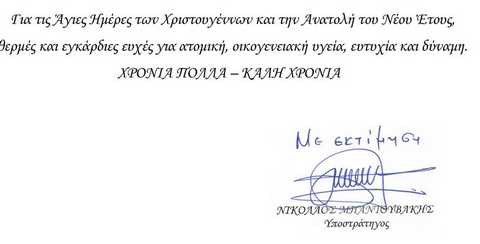 Για τις Άγιες Ημέρες των Χριστουγέννων και την Ανατολή του Νέου Έτους,
θερμές και εγκάρδιες ευχές για ατομική, οικογενειακή υγεία, ευτυχία και δύναμη.
ΧΡΟΝΙΑ ΠΟΛΛΑ – ΚΑΛΗ ΧΡΟΝΙΑ
Με εκτίμηση
ΝΙΚΟΛΑΟΣ ΜΠΑΝΤΟΥΒΑΚΗΣ
Υποστράτηγος